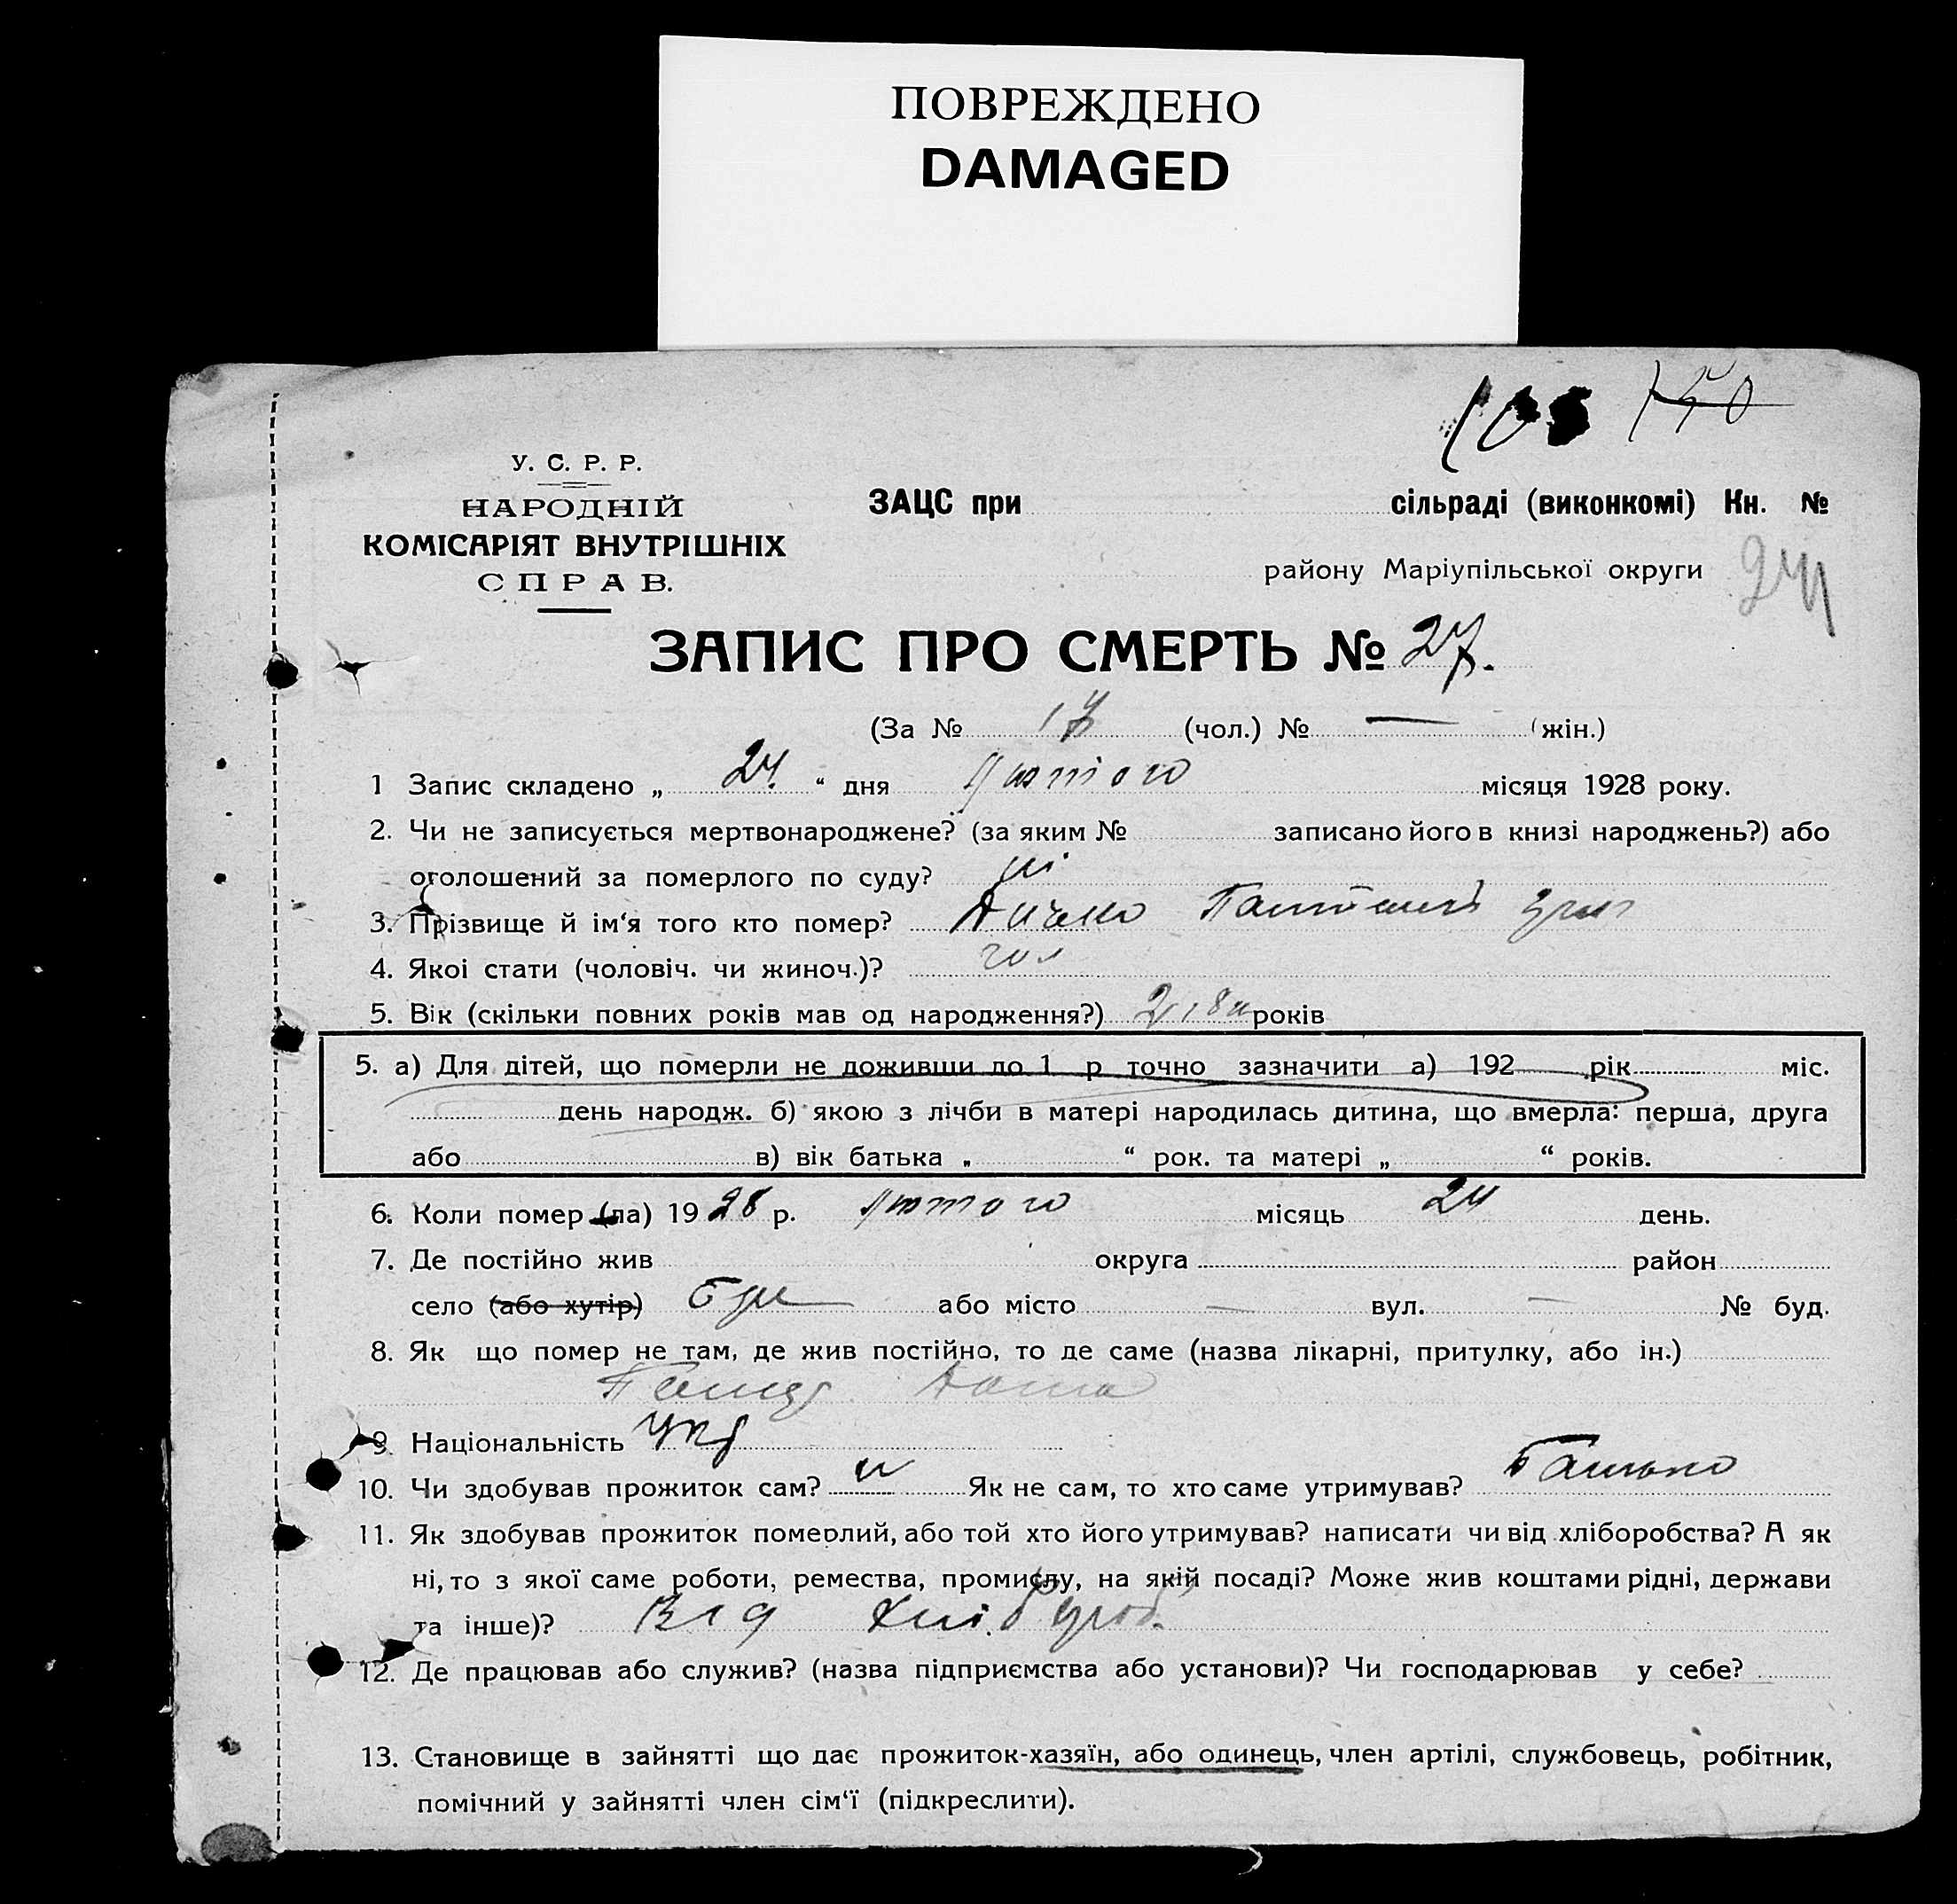 ПОВРЕЖДЕНО
DAMAGED
У. С. Р. Р.
НАРОДНІЙ
КОМІСАРІЯТ ВНУТРІШНІХ
СПРАВ.
ЗАЦС при сільраді (виконкомі) Кн. №
району Маріупільської округи 24
ЗАПИС ПРО СМЕРТЬ № 27.
(За № 17 (чол.) № — (жін.)
1 Запис складено „ 24 “ дня Лютого місяця 1928 року.
2. Чи не записується мертвонароджене? (за яким № записано його в книзі народжень?) або
оголошений за померлого по суду? ні
3. Прізвище й ім‘я того кто помер?
4. Якоі стати (чоловіч. чи жиноч.)? чол
5. Вік (скільки повних років мав од народження?) років
5. а) Для дітей, що померли не доживши до 1 р точно зазначити а) 192 рік міс.
день народж. б) якою з лічби в матері народилась дитина, що вмерла: перша, друга
або в) вік батька „ “ рок. та матері „ “ років.
6. Коли помер (ла) 1928 р. Лютого місяць 24 день.
7. Де постійно жив округа район
село (або хутір) або місто — вул. — № буд.
8. Як що помер не там, де жив постійно, то де саме (назва лікарні, притулку, або ін.)
9. Національність Укр
10. Чи здобував прожиток сам? ні Як не сам, то хто саме утримував? Батько
11. Як здобував прожиток померлий, або той хто його утримував? написати чи від хліборобства? А як
ні, то з якої саме роботи, ремества, промислу, на якій посаді? Може жив коштами рідні, держави
та інше)? Від хлібороб.
12. Де працював або служив? (назва підприємства або установи)? Чи господарював у себе?
13. Становище в зайнятті що дає прожиток-хазяїн, або одинець, член артілі, службовець, робітник,
помічний у зайнятті член сім‘ї (підкреслити).